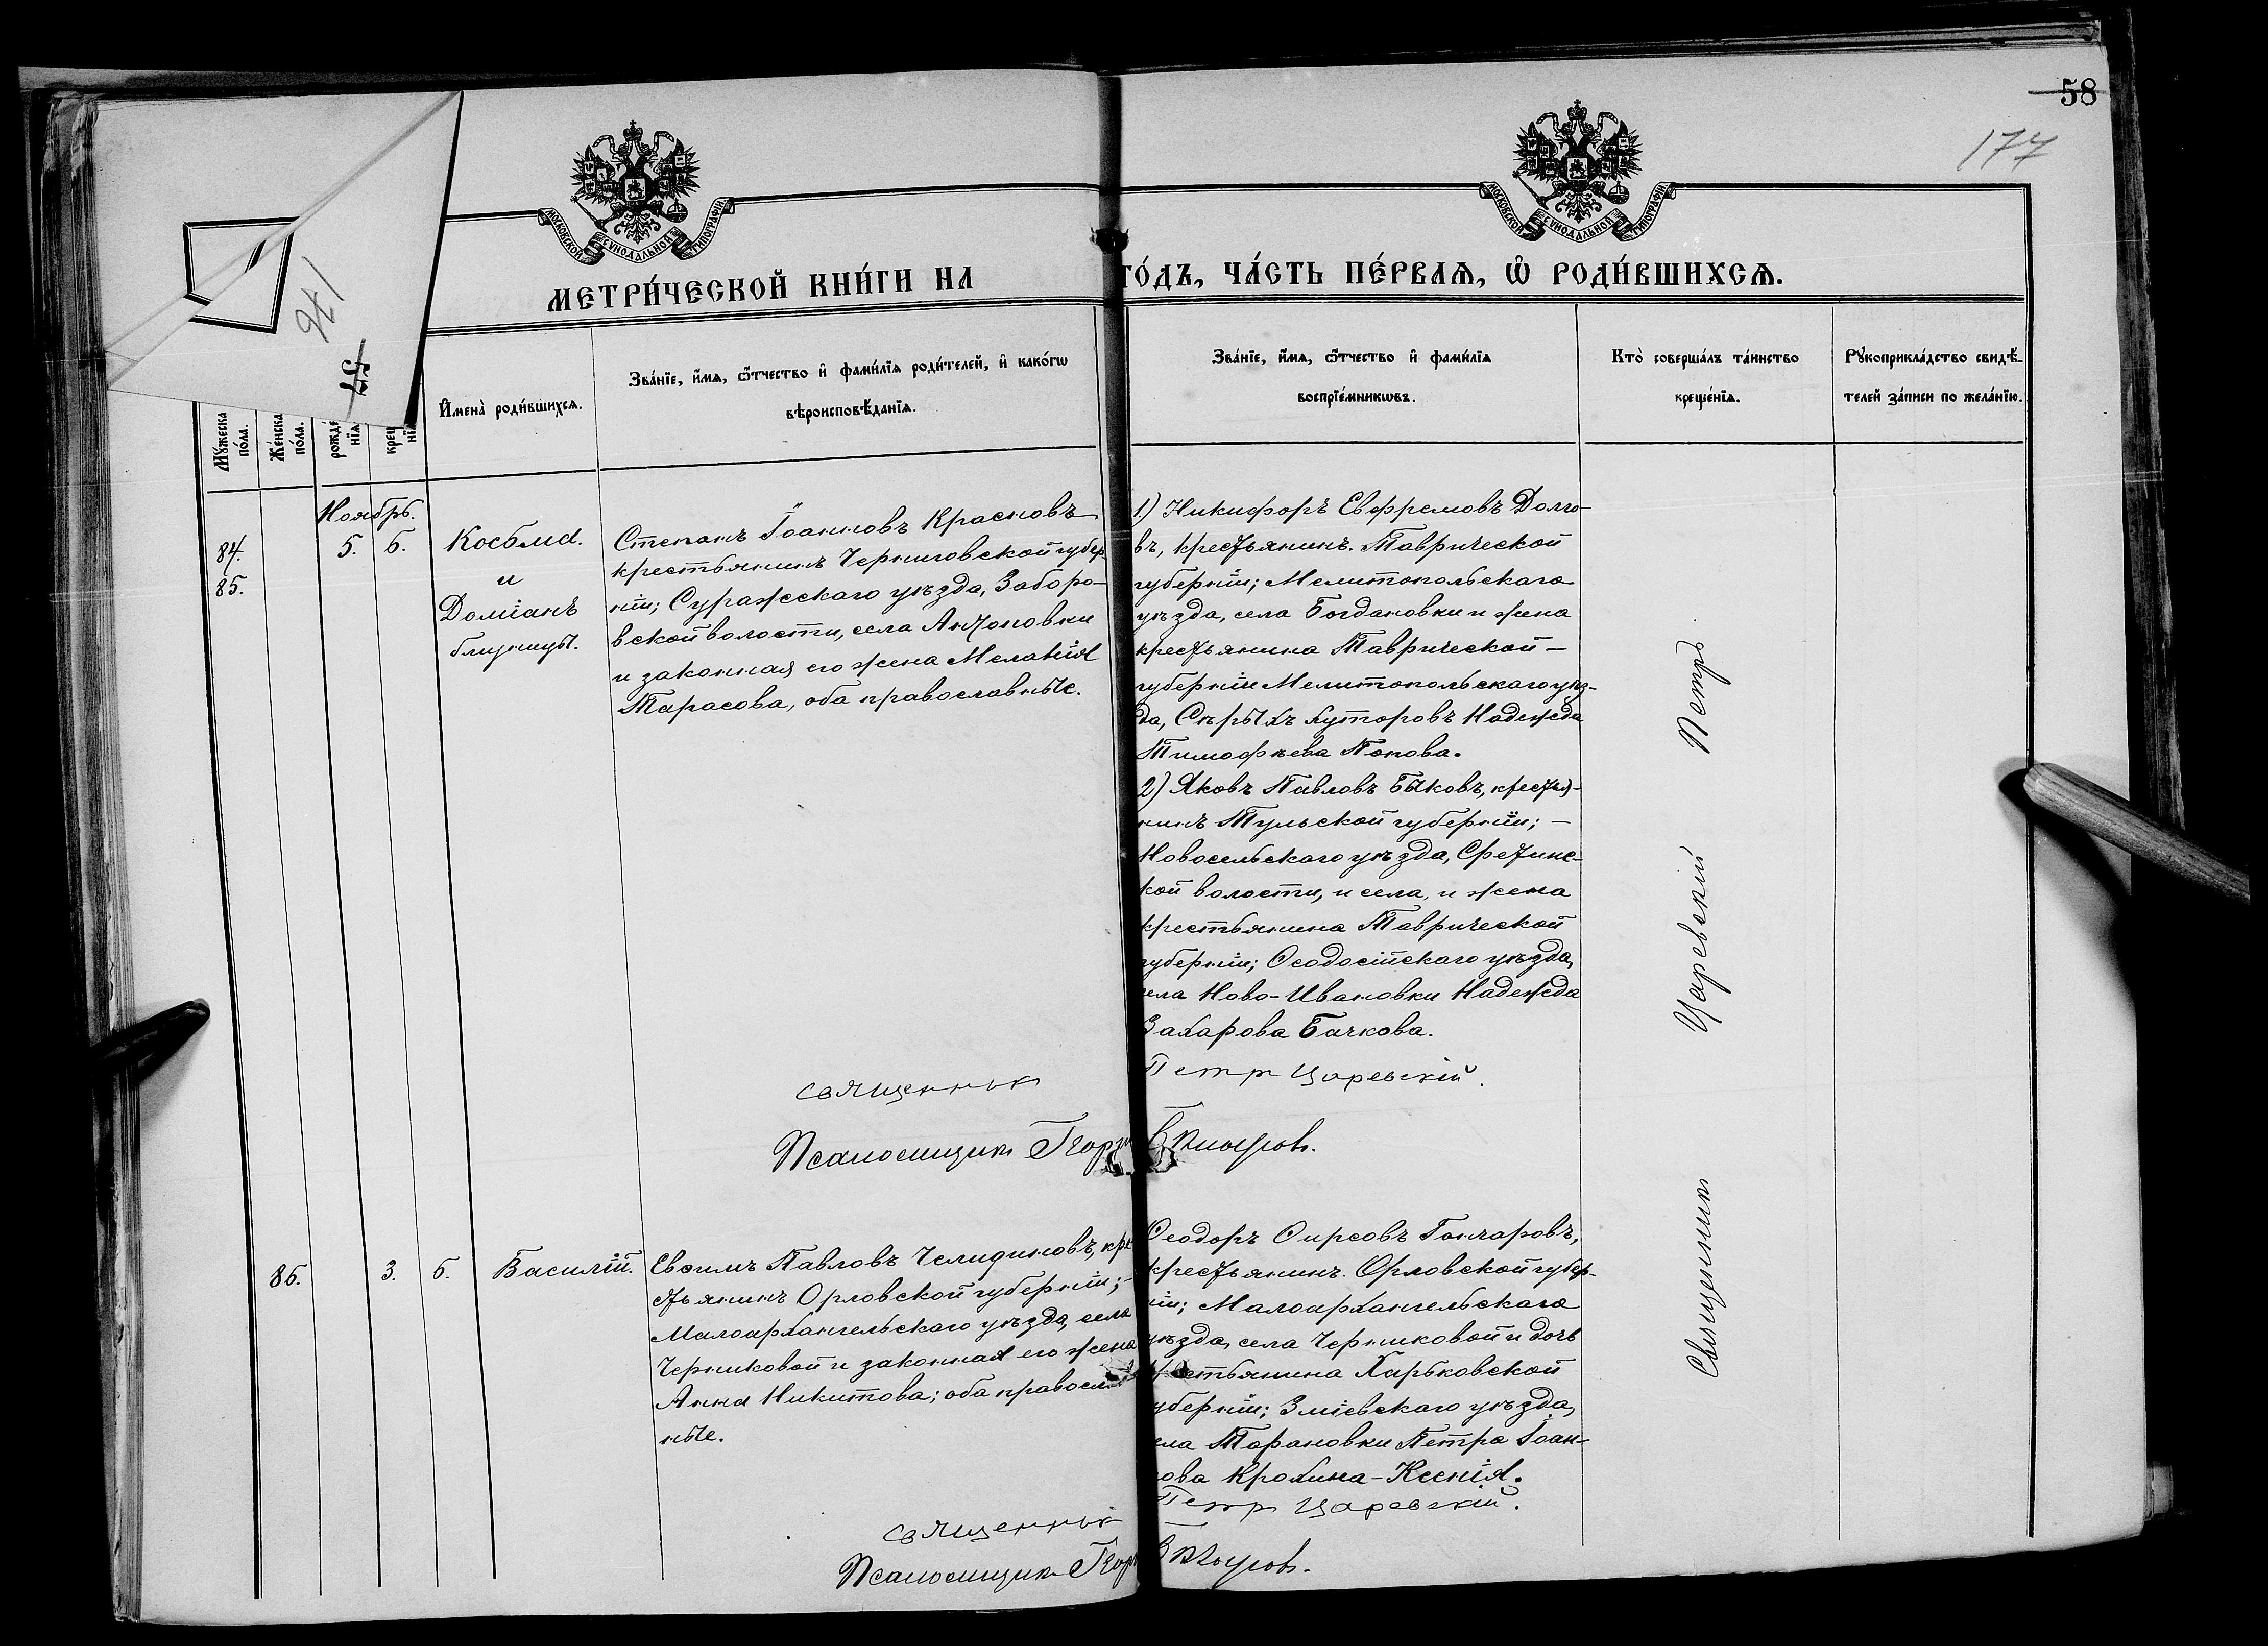 58
177
176
57
МОСКОВСКОЙ СѴНОДАЛЬНОЙ ТИПОГРАФІИ
МОСКОВСКОЙ СѴНОДАЛЬНОЙ ТИПОГРАФІИ
МЕТРИ́ЧЕСКОЙ КНИ́ГИ НА ГО́ДЪ, ЧА́СТЬ ПЕ́РВАѦ, Ѡ РОДИ́ВШИХСѦ.
Мꙋ́жеска по́ла.
Же́нска по́ла.
рожде нїѧ
крещ нї
И҆мена̀ роди́вшихсѧ.
Зва́нїе, и҆́мѧ, ѻ҆́тчество и҆ фами́лїѧ роди́телей, и҆ како́гѡ
вѣроисповѣ́данїѧ.
Зва́нїе, и҆́мѧ, ѻ҆́тчество и҆ фами́лїѧ
воспрїе́мникѡвъ.
Кто̀ соверша́лъ та́инство
креще́нїѧ.
Рꙋкоприкла́дство свидѣ́-
телей за́писи по жела́нїю.
Ноябрь.
84.
85.
5. 6.
Косьма.
и
Доміанъ
близнецы.
Степанъ Іоанновъ Красновъ
крестьянинъ Черниговской губер-
ніи; Суражскаго уѣзда, Заборо-
вской волости, села Антоновки
и законная его жена Меланія
Тарасова, оба православные.
1) Никифоръ Евфремовъ Долго-
въ, крестьянинъ. Таврической
губерніи; Мелитопольскаго
уѣзда, села Богдановки и жена
крестьянина Таврической –
губерніи Мелитопольскаго уѣз-
да, Сѣрыхъ хуторовъ Надежда
Тимофѣева Попова.
2) Яковъ Павловъ Быковъ, крестья-
нинъ Тульской губерніи; –
Новосельскаго уѣзда, Сретинс-
кой волости, и села, и жена
крестьянина Таврической
губерніи; Ѳеодосійскаго уѣзда,
села Ново-Ивановки Надежда
Захарова Бачкова.
священник Петр Царевскій.
Псаломщикъ Георгій
86.
3. 6.
Василій.
Евѳимъ Павловъ Челидиновъ, кре
стьянинъ Орловской губерніи; –
Малоархангельскаго уѣзда, села
Черниковой и законная его жена
Анна Никитова; оба православ
ные.
Ѳеодоръ Ѳирсовъ Гончаровъ,
крестьянинъ. Орловской губер-
ніи; Малоархангельскаго
уѣзда, села Черниковой и дочь
крестьянина Харьковской
губерніи; Зміевскаго уѣзда,
села Тарановки Петра Іоан-
нова Крохина – Ксенія.
священник Петр Царевскій.
Псаломщикъ Георгій
Священникъ Петръ Царевскій